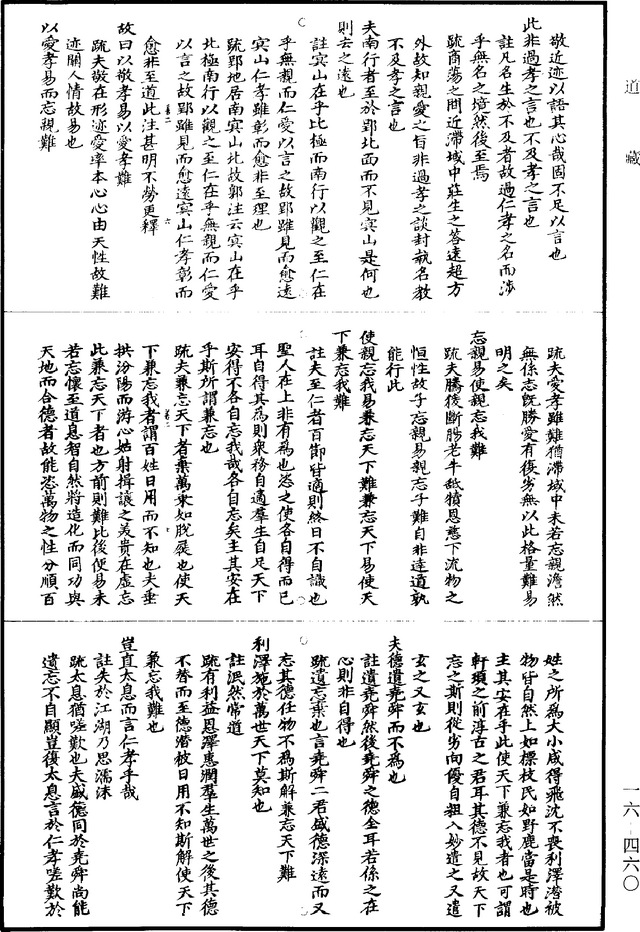 道藏
敬近迹以語其心哉固不足以言也
此非過孝之言也不及孝之言也
註凡名生於不及者故過仁孝之名而涉
乎無名之境然後至焉
疏商蕩之問近滯域中莊生之荅遠超方
外故知親愛之旨非過孝之談封執名教
不及孝之言也
夫南行者至於郢北面而不見冥山是何也
則去之遠也
註冥山在乎北極而南行以觀之至仁在
乎無親而仁愛以言之故郢雖見而愈遠
冥山仁孝雖彰而愈非至理也
疏郢地居南冥山北故郭注云冥山在乎
北極南行以觀之至仁在乎無親而仁愛
以言之故郢雖見而愈遠冥山仁孝彰而
愈非至道此注甚明不勞更釋
故曰以敬孝易以愛孝難
疏夫敬在形迹愛率本心心由天性故難
迹關人情故易也
以愛孝易而忘親難
疏夫愛孝雖難猶滯域中未若忘親澹然
無係忘既勝愛有優劣無以此格量難易
明之矣
忘親易使親忘我難
疏夫騰猨斷腸老牛舐犢恩慈下流物之
恒性故子忘親易親忘子難自非達道孰
能行此
使親忘我易兼忘天下難兼忘天下易使天
下兼忘我難
註夫至仁者百節皆適則終日不自識也
聖人在上非有為也恣之使各自得而已
耳自得其為則衆務自適羣生自足天下
安得不各自忘我哉各自忘矣主其安在
乎斯所謂兼忘也
疏夫兼忘天下者棄萬乘如脫屣也使天
下兼忘我者謂百姓日用而不知也夫垂
拱汾陽而游心姑射揖讓之美貴在虛忘
此兼忘天下者也方前則難比後便易未
若忘懷至道息智自然將造化而同功與
天地而合德者故能恣萬物之性分順百
姓之所為大小咸得飛沈不喪利澤潛被
物皆自然上如標枝民如野鹿當是時也
主其安在乎此使天下兼忘我者也可謂
軒頊之前淳古之君耳其德不見故天下
忘之斯則從劣向優自粗入妙遣之又遣
玄之又玄也
夫德遺堯舜而不為也
註遺堯舜然後堯舜之德全耳若係之在
心則非自得也
疏遺忘棄也言堯舜二君盛德深遠而又
忘其德任物不為斯解兼忘天下難
利澤施於萬世天下莫知也
註泯然常道
疏有利益恩澤惠潤羣生萬世之後其德
不替而至德潛被日用不知斯解使天下
兼忘我難也
豈直太息而言仁孝乎哉
註失於江湖乃思濡沫
疏太息猶嗟歎也夫盛德同於堯舜尚能
遺忘不自顯豈復太息言於仁孝嗟歎於
一六-四六〇